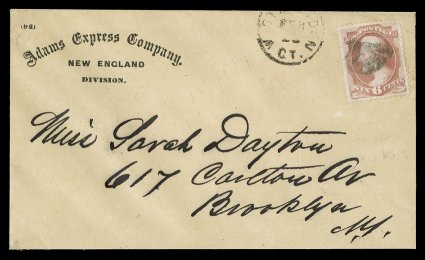 (92)
Adams Express Company.
NEW ENGLAND
DIVISION.
CT.
POSTAGE
SIX 6 CENTS
Miss Sarah Dayton
617 Carlton Av
Brooklyn
N.Y.